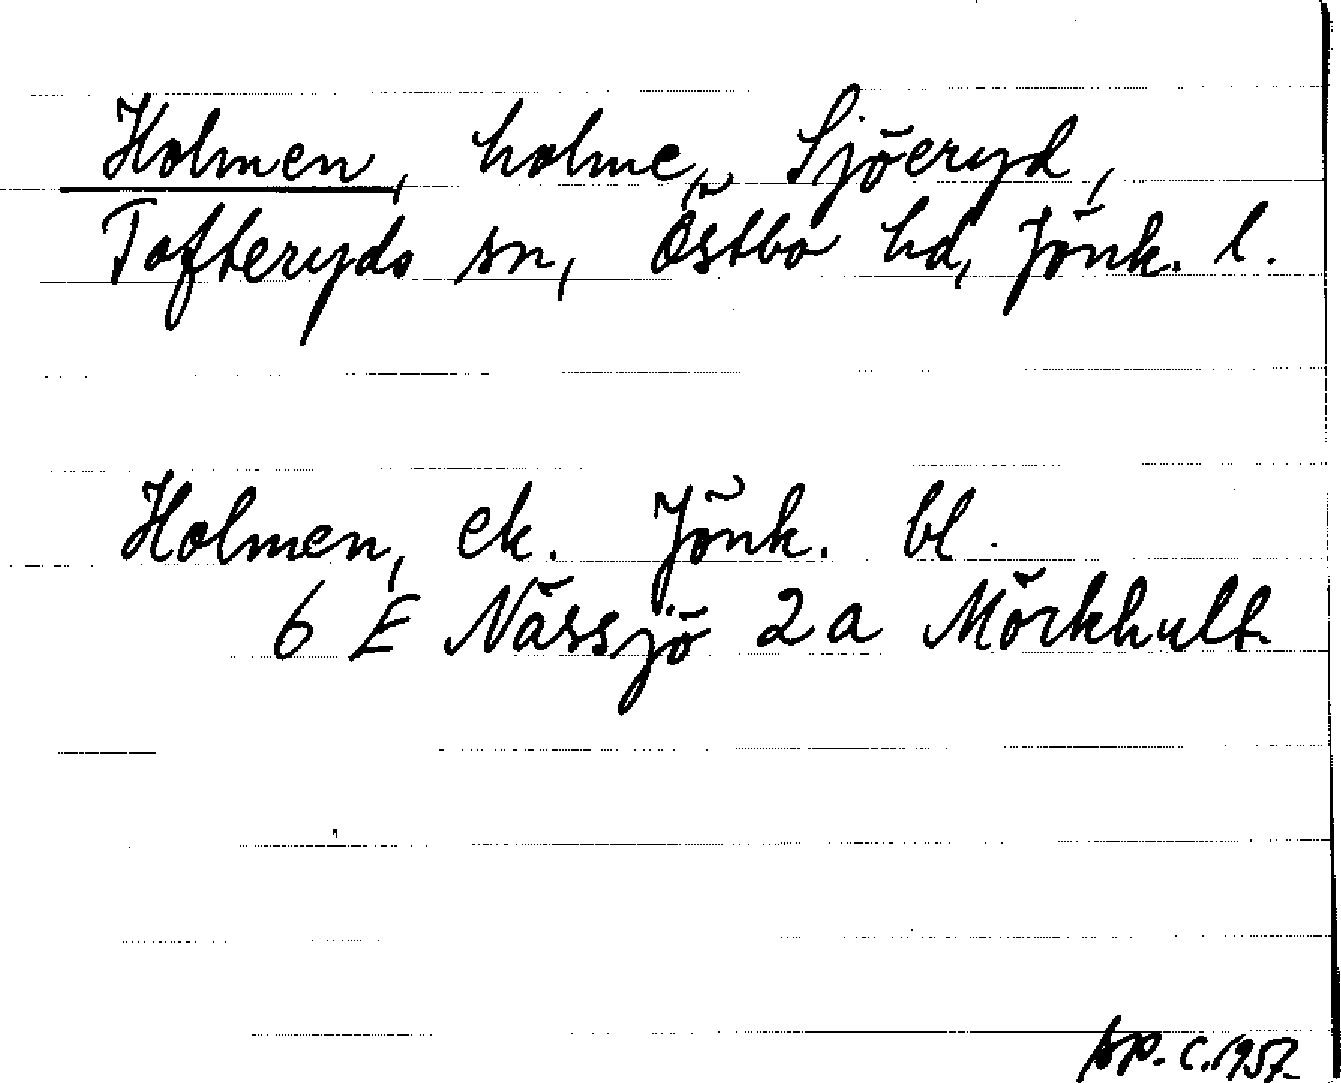 Holmen, holme, Sjöeryd,
Tofteryds sn, Östbo hd, Jönk. l.
Holmen, ek. Jönk. bl.
6 E Nässjö 2a Mörkhult
c. 1957